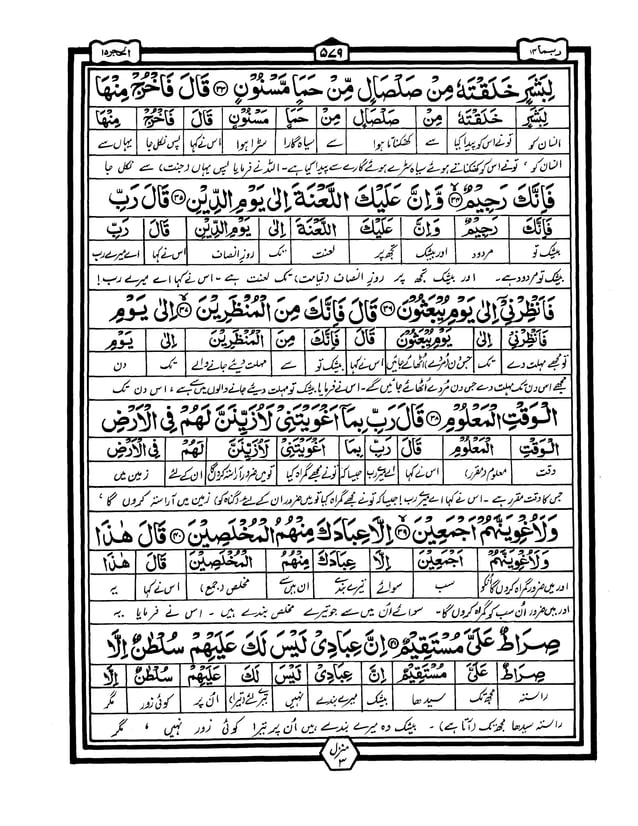 ربما ١٤
٥٧٩
الحجر ١٥
لِبَشَرٍ خَلَقْتَهٗ مِنْ صَلْصَالٍ مِّنْ حَمَاٍ مَّسْنُوْنٍ ﴿٣٣﴾ قَالَ فَاخْرُجْ مِنْهَا
لِبَشَرٍ خَلَقْتَهٗ مِنْ صَلْصَالٍ مِّنْ حَمَاٍ مَّسْنُوْنٍ قَالَ فَاخْرُجْ مِنْهَا
انسان کو تونے اس کو پیدا کیا سے کھنکھناتا ہوا سے سیاہ گارا سڑا ہوا اس نے کہا پس نکل جا یہاں سے
انسان کو، تونے اس کو کھنکھناتے ہوئے سیاہ سڑے ہوئے گارے سے پیدا کیا ہے۔ اللہ نے فرمایا پس یہاں (جنت) سے نکل جا
فَاِنَّكَ رَجِيْمٌ ﴿٣٤﴾ وَّاِنَّ عَلَيْكَ اللَّعْنَةَ اِلٰى يَوْمِ الدِّيْنِ ﴿٣٥﴾ قَالَ رَبِّ
فَاِنَّكَ رَجِيْمٌ وَّاِنَّ عَلَيْكَ اللَّعْنَةَ اِلٰى يَوْمِ الدِّيْنِ قَالَ رَبِّ
بیشک تو مردود اور بیشک تجھ پر لعنت تک روزِ انصاف اس نے کہا اے میرے رب
بیشک تو مردود ہے۔ اور بیشک تجھ پر روزِ انصاف (قیامت) تک لعنت ہے۔ اس نے کہا اے میرے رب!
فَاَنْظِرْنِيْٓ اِلٰى يَوْمِ يُبْعَثُوْنَ ﴿٣٦﴾ قَالَ فَاِنَّكَ مِنَ الْمُنْظَرِيْنَ ﴿٣٧﴾ اِلٰى يَوْمِ
فَاَنْظِرْنِيْٓ اِلٰى يَوْمِ يُبْعَثُوْنَ قَالَ فَاِنَّكَ مِنَ الْمُنْظَرِيْنَ اِلٰى يَوْمِ
تو مجھے مہلت دے تک جس دن (مردے) اٹھائے جائیں اس نے کہا بیشک تو سے مہلت دیئے جانے والے تک دن
مجھے اس دن تک مہلت دے جس دن مردے اٹھائے جائیں گے۔ اس نے فرمایا۔ بیشک تو مہلت دیئے جانے والوں میں سے ہے، اس دن تک
الْوَقْتِ الْمَعْلُوْمِ ﴿٣٨﴾ قَالَ رَبِّ بِمَآ اَغْوَيْتَنِيْ لَاُزَيِّنَنَّ لَهُمْ فِي الْاَرْضِ
الْوَقْتِ الْمَعْلُوْمِ قَالَ رَبِّ بِمَآ اَغْوَيْتَنِيْ لَاُزَيِّنَنَّ لَهُمْ فِي الْاَرْضِ
وقت معلوم (مقرر) اس نے کہا اے میرے رب جیسا کہ تو نے مجھے گمراہ کیا تو میں ضرور آراستہ کروں گا ان کے لئے زمین میں
جس کا وقت مقرر ہے۔ اس نے کہا اے میرے رب! جیسا کہ تو نے مجھے گمراہ کیا تو میں ضرور ان کے لئے (گناہ کو) زمین میں آراستہ کروں گا،
وَلَاُغْوِيَنَّهُمْ اَجْمَعِيْنَ ﴿٣٩﴾ اِلَّا عِبَادَكَ مِنْهُمُ الْمُخْلَصِيْنَ ﴿٤٠﴾ قَالَ هٰذَا
وَلَاُغْوِيَنَّهُمْ اَجْمَعِيْنَ اِلَّا عِبَادَكَ مِنْهُمُ الْمُخْلَصِيْنَ قَالَ هٰذَا
اور میں ضرور گمراہ کروں گا انکو سب سوائے تیرے بندے ان میں سے مخلص (جمع) اس نے کہا یہ
اور میں ضرور اُن سب کو گمراہ کروں گا۔ سوائے اُن میں سے جو تیرے مخلص بندے ہیں۔ اس نے فرمایا یہ
صِرَاطٌ عَلَيَّ مُسْتَقِيْمٌ ﴿٤١﴾ اِنَّ عِبَادِيْ لَيْسَ لَكَ عَلَيْهِمْ سُلْطٰنٌ اِلَّا
صِرَاطٌ عَلَيَّ مُسْتَقِيْمٌ اِنَّ عِبَادِيْ لَيْسَ لَكَ عَلَيْهِمْ سُلْطٰنٌ اِلَّا
راستہ مجھ تک سیدھا بیشک میرے بندے نہیں تیرے لئے (تیرا) اُن پر کوئی زور مگر
راستہ سیدھا مجھ تک (آتا ہے)۔ بیشک وہ میرے بندے ہیں اُن پر تیرا کوئی زور نہیں، مگر
منزل ٣